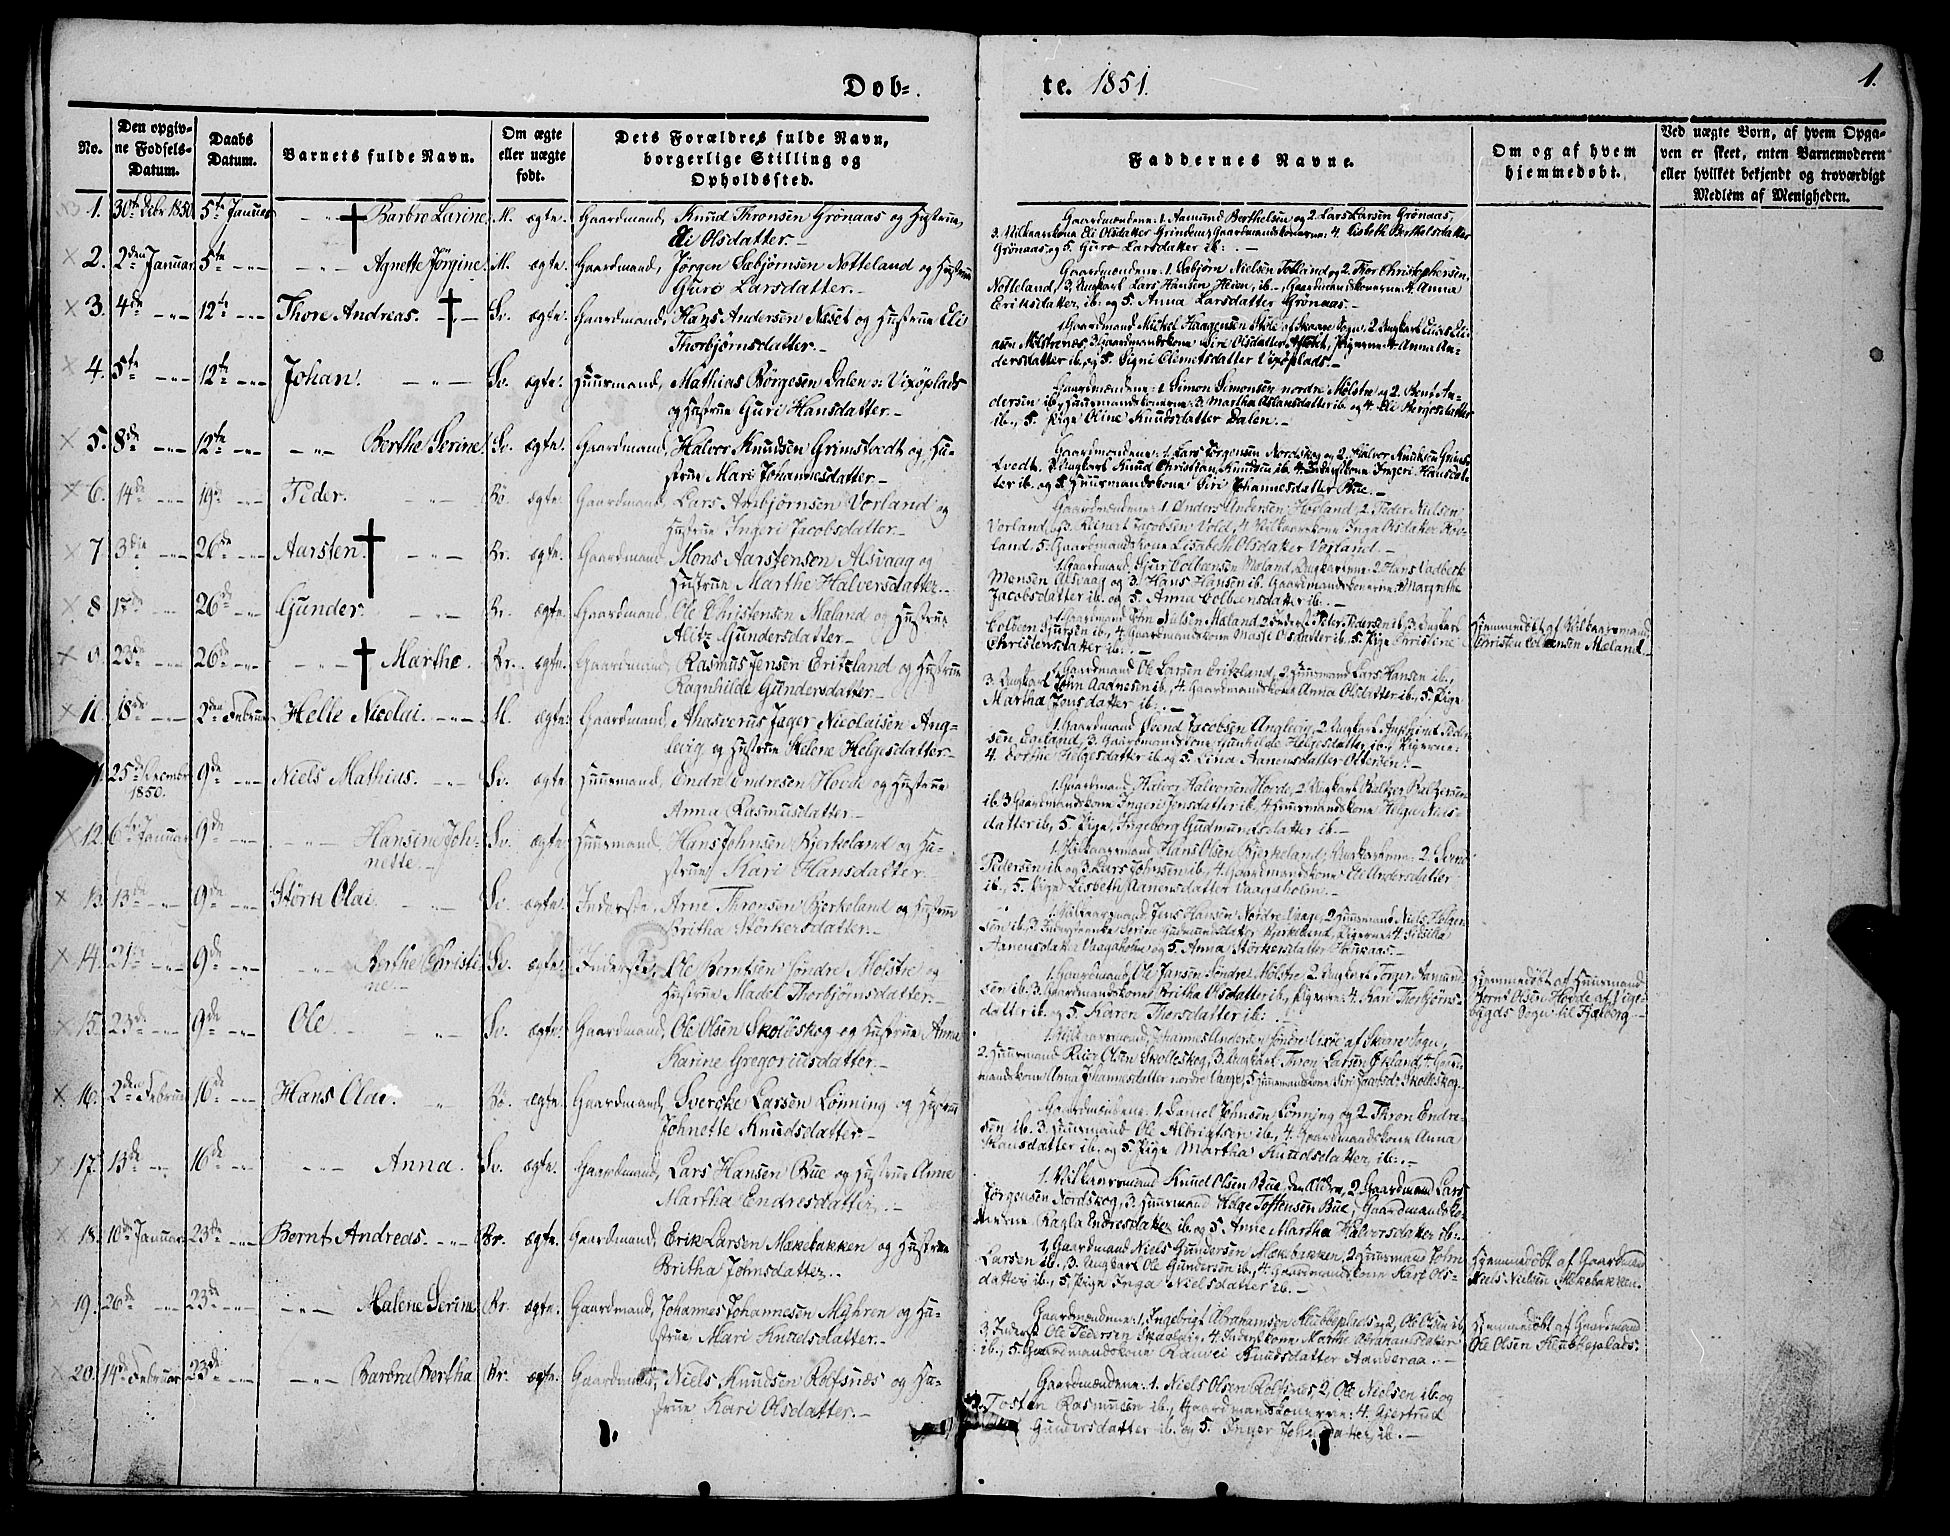 Døb- te. 1851. 1.
No.
Den opgiv-
ne Fødsels-
Datum.
Daabs
Datum.
Barnets fulde Navn.
Om ægte
eller uægte
født.
Dets Forældres fulde Navn,
borgerlige Stilling og
Opholdssted.
Faddernes Navne.
Om og af hvem
hjemmedøbt.
Ved uægte Børn, af hvem Opga-
ven er skeet, enten Barnemoderen
eller hvilket bekjendt og troværdigt
Medlem af Menigheden.
1. 30te Decbr 1850. 5te Januar Barbre Larine. M. ægte. Gaardmand, Knud Thronsen Grønaas og Hustrue
Eli Olsdatter.
Gaardmændene: 1. Aamund Berthelsen og 2. Lars Larsen Grønaas,
3. Vilkaarskone Eli Olsdatter Gaardmandskonerne: 4. Lisbeth Berthelsdatter
Grønaas, og 5. Guro Larsdatter ib:
2. 2den Januar. 5te Agnette Jörgine. M. ægte. Gaardmand, Jørgen Sæbjørnsen Notteland og Hustrue
Guro Larsdatter.
Gaardmændene: 1. Sæbjørn Nielsen Totland og 2. Thor Christophersen
Notteland, 3. Ungkarl Lars Hansen Heien, ib., Gaardmandskonerne: 4. Anna
Eriksdatter, ib. og 5. Anna Larsdatter Grønaas.
3. 4de 12te Thore Andreas. Sv. ægte. Gaardmand, Hans Andersen Næset og Hustrue Eli
Thorbjørnsdatter.
1. Gaardmand Mikkel Haagensen af Skaare Sogn, 2. Ungkarl
3. Gaardmandskone Siri Olsdatter Pigerne: 4. Anna An-
dersdatter ib. og 5. Signi Clemetsdatter Vixøplads.
4. 5te 12te Johan. Sv. ægte. Huusmand, Mathias Børgesen Dalen Vixøplads
og Hustrue Guri Hansdatter.
Gaardmændene: 1. Simon Simonsen nordre Mølstre og 2. Bent An-
dersen ib., Huusmandskonerne: 3. Martha Aslansdatter ib. og 4. Eli Børgesdatter
ib., 5. Pige Oline Knudsdatter Dalen.
5. 8de 12te Berthe Serine. Sv. ægte. Gaardmand, Halvor Knudsen Grimstvedt og Hu-
strue Mari Johannesdatter.
Gaardmændene: 1. Lars Jørgensen Nordskog og 2. Halvor Knudsen Grims-
tvedt, 3. Ungkarl Knud Christian Knudsen ib. 4. Inderstkone Ingeri Hansdat-
ter ib. og 5. Huusmandskone Siri Johannesdatter Bue.
6. 14de 19de Peder. Bø. ægte. Gaardmand, Lars Asbjørnsen Vorland og
Hustrue Ingeri Jacobsdatter.
Gaardmændene: 1. Anders Andersen Hovland, 2. Peder Nielsen
Vorland, 3. Reinert Jacobsen Vold, 4. Vilkaarskone Inga Olsdatter Hov-
land, 5. Gaardmandskone Lisabeth Olsdatter Vorland.
7 3die 26de Aarsten. Br. ægte. Gaardmand Mons Aarstensen Alsvaag og
Hustrue Marthe Halversdatter.
1. Gaardmand, Sjur Colbensen Meland, Ungkarlene: 2. Hans Ludvik
Monsen Alsvaag og 3. Hans Hansen ib. Gaardmandskonerne: 4. Margrethe
Jacobsdatter ib. og 5. Anna Colbensdatter ib.
8 17de 26de Gunder. Br. ægte. Gaardmand, Ole Christensen Maland og Hustrue
Alitz Gundersdatter.
1. Gaardmand John Nielsen Meland, 2. Inderst Peder Pedersen ib, 3. Ungkarl
Colbeen Sjursen ib., 4. Gaardmandskone Masje Olsdatter ib. 5. Pige Christine
Christensdatter ib.
Hjemmedøbt af Vilkaarsmand
Christen Colbensen Meland.
9. 23de 26de Marthe. Br. ægte. Gaardmand, Rasmus Jensen Eritzland og Hustrue
Ragnhilde Gundersdatter.
1. Gaardmand Ole Larsen Eritzland, 2. Huusmand Lars Hansen ib.,
3. Ungkarl John Aadnesen ib., 4. Gaardmandskone Anna Olsdatter ib., 5. Pige
Martha Jonsdatter ib:
10. 18de 2den Februar Helle Nicolai. M. ægte. Gaardmand, Ahasverus Jager Nicolaisen Ang-
levig og Hustrue Helene Helgesdatter.
1. Gaardmand Svend Jacobsen Anglevig, 2. Ungkarl Peder-
sen Eidland, 3. Gaardmandskone Gunhilde Helgesdatter ib., Pigerne:
4. Berthe Helgesdatter ib. og 5. Lina Aanensdatter Ottersen.
25de Decembr 9de Niels Mathias. Sv. ægte. Huusmand, Endre Endresen Hovde og Hustrue
1850.
Anna Rasmusdatter.
1. Gaardmand, Halvor Halvorsen Hovde, 2. Ungkarl Baltzer Baltzersen
ib. 3. Gaardmandskone Ingeri Jonsdatter ib. 4. Huusmandskone Helga Niels-
datter ib, 5. Pige, Ingeborg Gudmundsdatter ib.
12. 6te Januar 9de Hansine Joh- Sv. ægte. Huusmand, Hans Johnsen Bjerkeland og Hu-
nette.
strue Kari Hansdatter.
1. Vilkaarsmand Hans Olsen Bjerkeland, Ungkarlene: 2.
Pedersen ib. og 3. Lars Johnsen ib., 4. Gaardmandskone Eli Andersdatter
ib., 5. Pige Lisbeth Aanensdatter Vaagsholm.
13. 13de 9de Störk Olai. Sv. ægte. Inderste, Arne Thronsen Bjerkeland og Hustrue
Britha Størkersdatter.
1. Vilkaarsmand Jens Hansen Nordre Vaage, 2. Huusmand Niels Helge-
sen ib. 3. Serine Gudmundsdatter Bjerkeland, Pigerne: 4.
Aanensdatter Vaagsholm og 5. Anna Størkersdatter Haukaas.
14. 21de 9de Berthe Christi- Sv. ægte. Inderste, Ole Berntsen söndre Mølstre og
ne.
Hustrue Madel Thorbjørnsdatter.
1. Gaardmand, Ole Jansen Søndre Mølstre, 2. Ungkarl Torger Aamund-
sen ib. 3. Gaardmandskone Britha Olsdatter ib., Pigerne: 4. Kari Thorbjørns-
datter ib. og 5. Karen Thorsdatter ib:
Hjemmedøbt af Huusmand
Bernt Olsen Hovde af Vige-
bygds Sogn til Fjelberg.
15. 23de 9de Ole Sv. ægte. Gaardmand, Ole Olsen Skolleskog og Hustrue Anna
Karine Gregoriusdatter.
1. Vilkaarsmand, Johannes Andersen Søndre Vixøe af Skaare Sogn,
2. Huusmand Reier Olsen Skolleskog, 3. Ungkarl Tron Larsen Økland, 4. Gaard-
mandskone Anna Johannesdatter nordre Vaage, 5. Huusmandskone Siri Jacobsd. Skolleskog.
16. 2den Februar 16de Hans Olai. Bø. ægte. Gaardmand, Sverche Larsen Lønning og Hustrue
Johnette Knudsdatter.
Gaardmændene: 1. Daniel Johnsen Lønning og 2. Thron Endre-
sen ib. 3. Huusmand Ole Albrigtsen ib., 4. Gaardmandskone Anna
Hansdatter ib. og 5. Pige Martha Knudsdatter, ib:
17. 13de 16de Anna. Sv. ægte. Gaardmand, Lars Hansen Bue og Hustrue Anne
Martha Endresdatter.
1. Vilkaarsmand Knud Olsen Bue, den Ældre, 2. Gaardmand Lars
Jørgensen Nordskog, 3. Huusmand Helge Tostensen Bue, Gaardmandsko-
nerne Ragla Endresdatter ib. og 5. Anne Martha Halversdatter ib:
18. 10de Januar 23de Bernt Andreas. Br. ægte. Gaardmand, Erik Larsen Mækebakken og Hustrue
Britha Johnsdatter.
1. Gaardmand Niels Gundersen Mækebakken, 2. Huusmand John
Larsen ib., 3. Ungkarl Ole Gundersen ib., 4. Gaardmandskone Kari Ols-
datter ib., 5. Pige Inga Nielsdatter ib.
Hjemmedøbt af Gaardmand
Niels Nielsen Mækebakken.
19. 26de 23de Malene Serine. Br. ægte. Gaardmand, Johannes Johannesen Myhren og Hu-
strue Mari Knudsdatter.
Gaardmændene: 1. Ingebrigt Abrahamsen Klubbeplads og 2. Ole Olsen ib
3. Inderst Ole Pedersen Skaalevig, 4. Inderstkone Marthe Abrahamsdatter
ib., 5. Gaardmandskone Ranvei Knudsdatter Aanderaa.
Hjemmedøbt af Gaardmand
Ole Olsen Klubbeplads.
20. 14de Februar 23de Barbra Bertha Br. ægte. Gaardmand, Niels Knudsen Rolfsnæs og Hu-
strue Kari Olsdatter.
Gaardmændene: 1. Niels Olsen Rolfsnæs, 2. Ole Nielsen ib. og
3. Tosten Rasmusen ib., Gaardmandskonerne: 4. Giertrud
Gundersdatter ib. og 5. Inger Johnsdatter, ib.